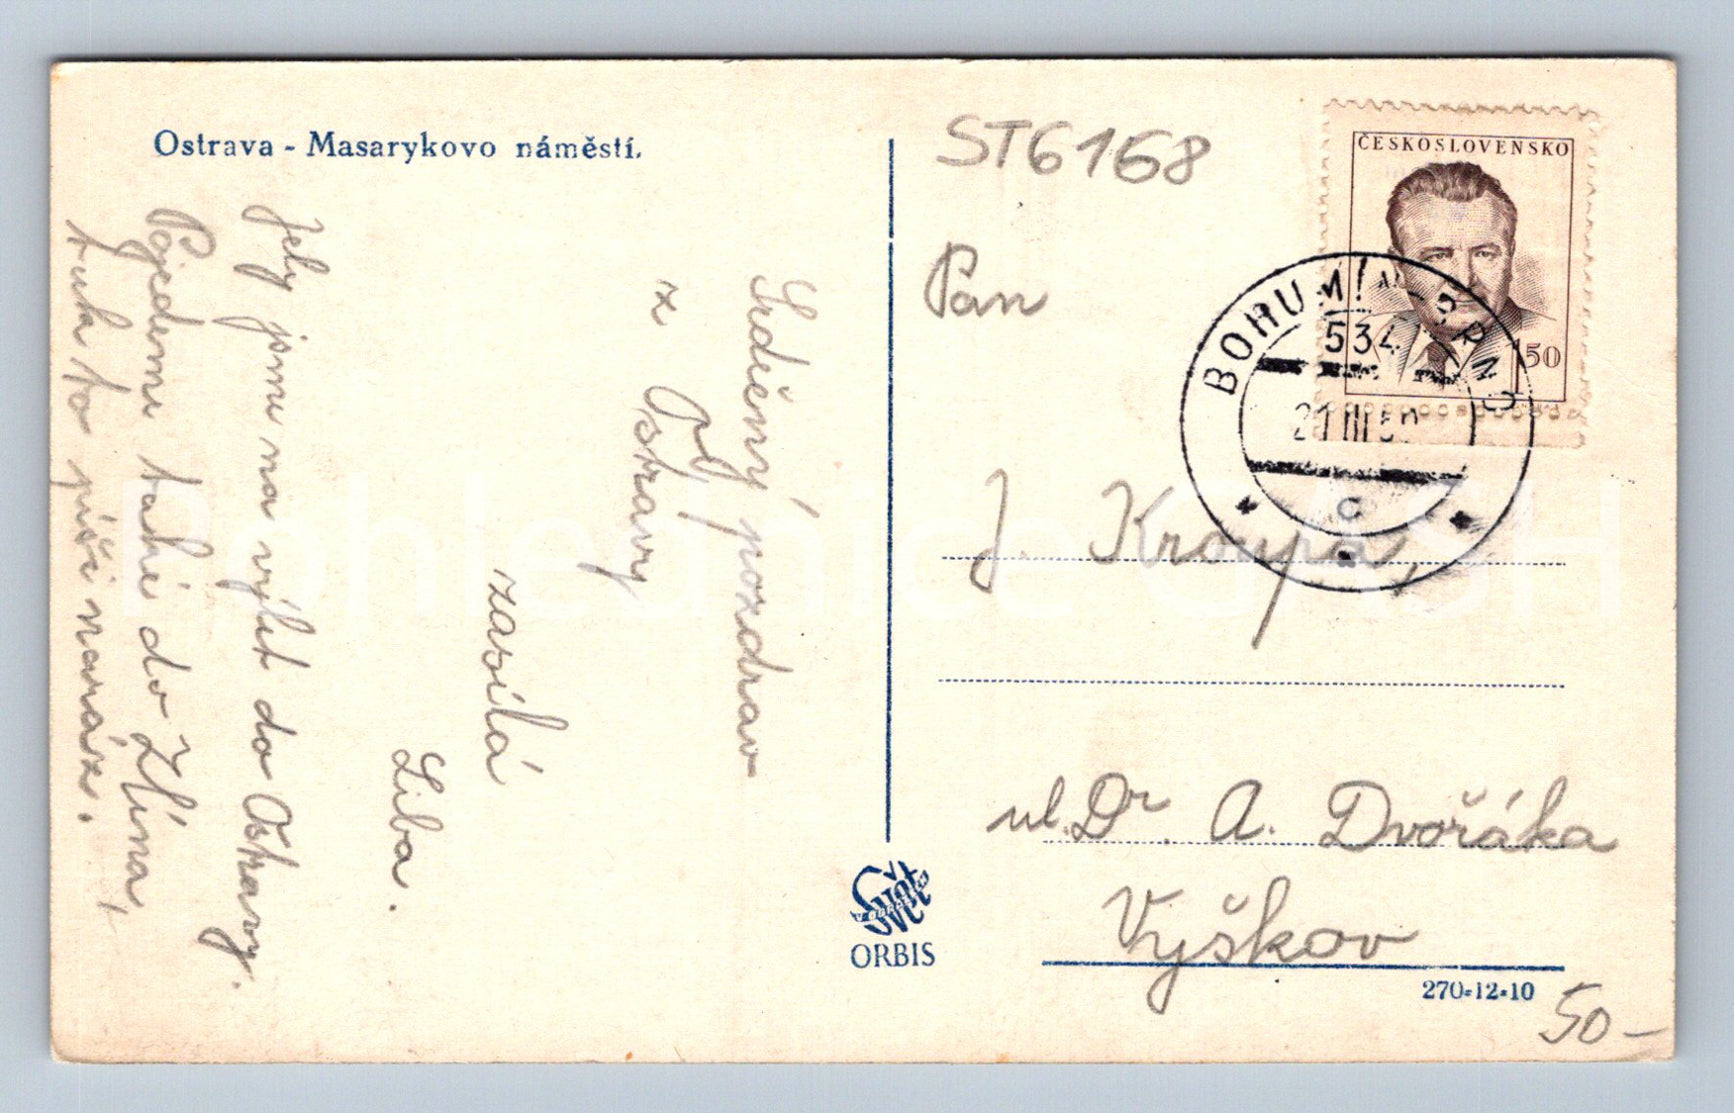 Ostrava - Masarykovo náměstí.
Srdečný pozdrav
z Ostravy
zasílá
Liba.
Jely jsme na výlet do Ostravy.
Pojedeme také do Zlína,
tuk to píši naráz.
ST6168
Pan
J. Kroupa,
ul. Dr. A. Dvořáka
Vyškov
ČESKOSLOVENSKO
1'50
BOHUMÍN - BRNO
534
21 III 50
C
Svět
V OBRAZECH
ORBIS
270-12-10
50-
Pohlednice GASH